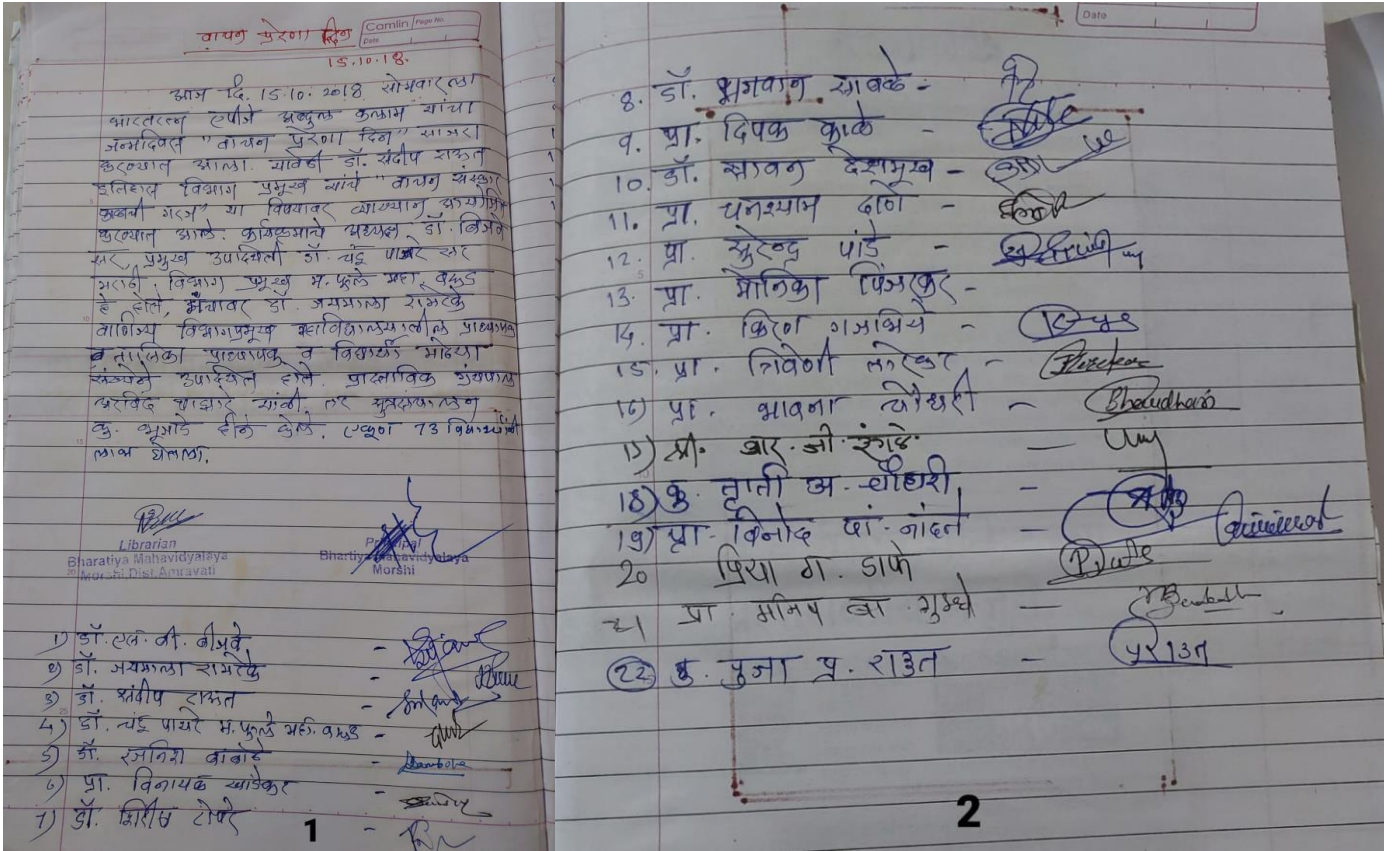 Camlin Page No.
Date
वाचन प्रेरणा दिन
15.10.18.
आज दि. 15.10.2018 सोमवारला
भारतरत्न एपीजे अब्दुल कलाम यांचा
जन्मदिवस "वाचन प्रेरणा दिन" साजरा
करण्यात आला. यावेळी डॉ. संदीप राऊत
इतिहास विभाग प्रमुख यांचे "वाचन संस्कार
काळाची गरज" या विषयावर व्याख्यान आयोजित
करण्यात आले. कार्यक्रमाचे अध्यक्ष डॉ. बिजवे
सर, प्रमुख उपस्थिती डॉ. चंदू पाखरे सर
मराठी विभाग प्रमुख म. फुले महा. वरुड
हे होते, मंचावर डॉ. जयमाला रामटेके
वाणिज्य विभागप्रमुख महाविद्यालयातील प्राध्यापक
व तासिका प्राध्यापक व विद्यार्थी मोठ्या
संख्येने उपस्थित होते. प्रास्ताविक ग्रंथपाल
अरविंद यांनी तर सुत्रसंचालन
कु. हीने केले. एकूण 73 विद्यार्थ्यांनी
लाभ घेतला.
Librarian
Bharatiya Mahavidyalaya
Morshi Dist. Amravati
Principal
Bhartiya Mahavidyalaya
Morshi
1) डॉ. एल. बी. बीजवे -
2) डॉ. जयमाला रामटेके -
3) डॉ. संदीप राऊत -
4) डॉ. चंदू पाखरे म. फुले महा. वरुड -
5) डॉ. रजनिश बांबोडे -
6) प्रा. विनायक खांडेकर -
7) डॉ. शिरीष टोपरे -
1
Date
8. डॉ. भगवान साबळे -
9. प्रा. दिपक काळे -
10. डॉ. सावन देशमुख -
11. प्रा. घनश्याम दाणे -
12. प्रा. सुरेन्द्र पांडे -
13. प्रा. मोनिका पिंजरकर -
14. प्रा. किरण गजभिये -
15. प्रा. त्रिवेणी -
16) प्रा. भावना चौधरी -
17) श्री. आर. जी. रंगारे -
18) कु. तृप्ती अ. चौधरी -
19) प्रा. विनोद पां. नांदने -
20 प्रिया ग. डाफे
21 प्रा. मनिष बा. गुम्धे -
22 कु. पुजा प्र. राउत - पु राउत
2